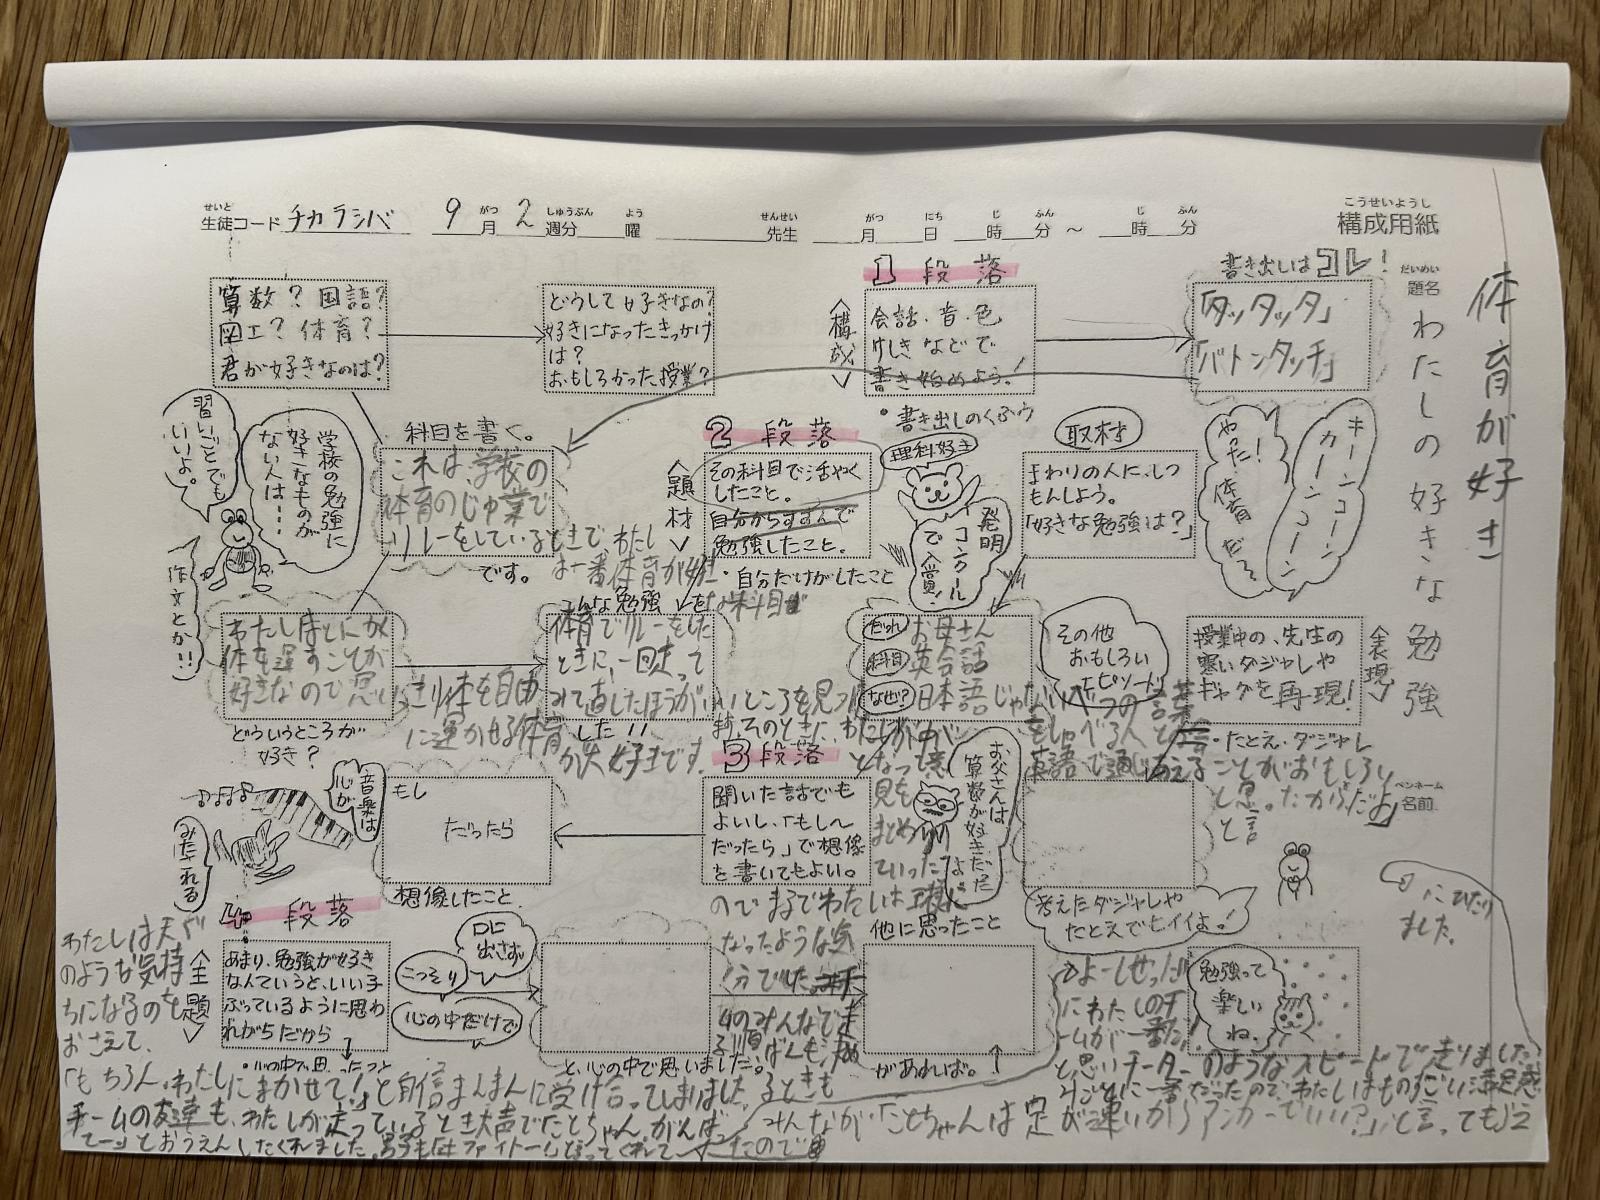 せいと
生徒コード チカラシバ 9月 2週分 曜 先生 月 日 時 分 ～ 時 分
がつ しゅうぶん よう せんせい がつ にち じ ふん じ ふん
こうせいようし
構成用紙
だいめい
題名
体育が好き
わたしの好きな勉強
ペンネーム
名前
書き出しはコレ！
「タッタッタ」
「バトンタッチ」
1段落
＜構成＞
会話・音・色
けしきなどで
書き始めよう！
・書き出しのくふう
どうして好きなの？
好きになったきっかけ
は？
おもしろかった授業？
算数？国語？
図工？体育？
君が好きなのは？
キーンコーン
カーンコーン
やった！体育だぞ
取材
まわりの人に、しつ
もんしよう。
「好きな勉強は？」
理科好き
発明
コンクール
で入賞！
2段落
＜題材＞
その科目で活やく
したこと。
自分からすすんで
勉強したこと。
・自分だけがしたこと
科目を書く。
これは、学校の
体育のじゅ業で
リレーをしているときで、わたし
です。
は一番体育が好
こんな勉強
な科目
学校の勉強に
好きなものが
ない人は……
習いごとでも
いいよ。
作文とか！！
＜表現＞
授業中の、先生の
寒いダジャレや
ギャグを再現！
・たとえ・ダジャレ
その他
おもしろい
エピソード
だれ お母さん
科目 英会話
なぜ？ 日本語じゃない
英語で通じあえることがおもしろい
と思。たからだよ」
と言
体育でリレーをした
ときに、一回走って
みて直したほうがいいところを見つ
した！！
ます。そのときに、わたしが中心
となって意
見を
まとめ
ていった
のでまるでわたしは王様に
なったような気
分でした。
わたしは とにかく
体を運すことが
好きなので思いきり体を自由
に運かせる体育
が大好きです。
どういうところが
好き？
3段落
聞いた話でも
よいし、「もし～
だったら」で想像
を書いてもよい。
お父さんは
算数が好きだた
よ。
他に思ったこと
考えたダジャレや
たとえでヒイイよ！
もし
だったら
想像したこと
音楽は
心が
みたされる
4段落
＜主題＞
あまり、勉強が好き
なんていうと、いい子
ぶっているように思わ
れがちだから
・心の中で思ったこと
口に
出さず
こっそり
心の中だけで
と、心の中で思いました。
があれば。
勉強って
楽しい
ね。
わたしは天
のような気持
ちになるのを
おさえて、
「もちろん、わたしにまかせて！」と自信まんまんに受け合ってしまいました。
チームの友達も、わたしが走っているとき大声で「ことちゃん、がんば
て～」とおうえんしてくれました。男子も「ファイトー」と言ってくれて
みんなが「ことちゃんは足が速いからアンカーでいい？」と言っても
たので
よーしぜったい
にわたしのチ
ームが一番だ！
と思いチーターのようなスピードで走りました。
みごとに一番だったので、わたしはものすごい満足感
にひたり
ました。